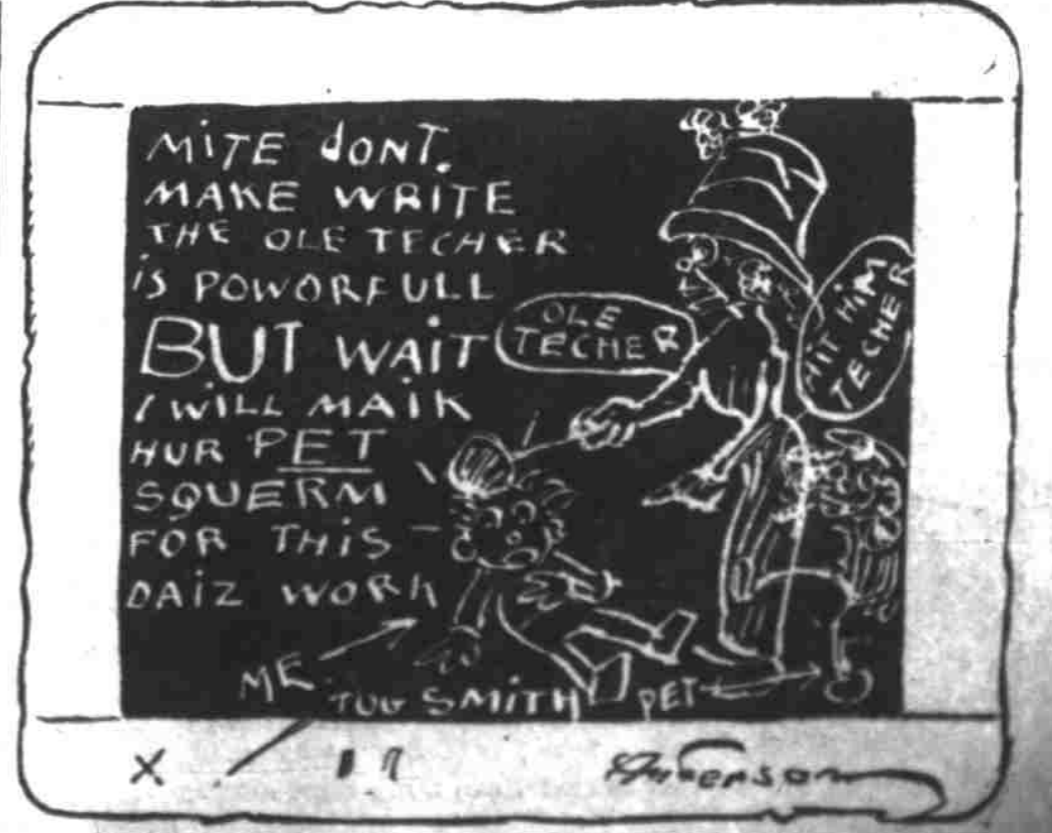 MiTE dONT.
MAKE WRITE
THE OLE TECHER
iS POWORFULL
BUT WAiT
I WILL MAIK
HUR PET
SQUERM
FOR THiS
DAiZ WORK
OLE
TECHER
HIT HIM
TECHER
ME
TUG SMiTH
PET
X